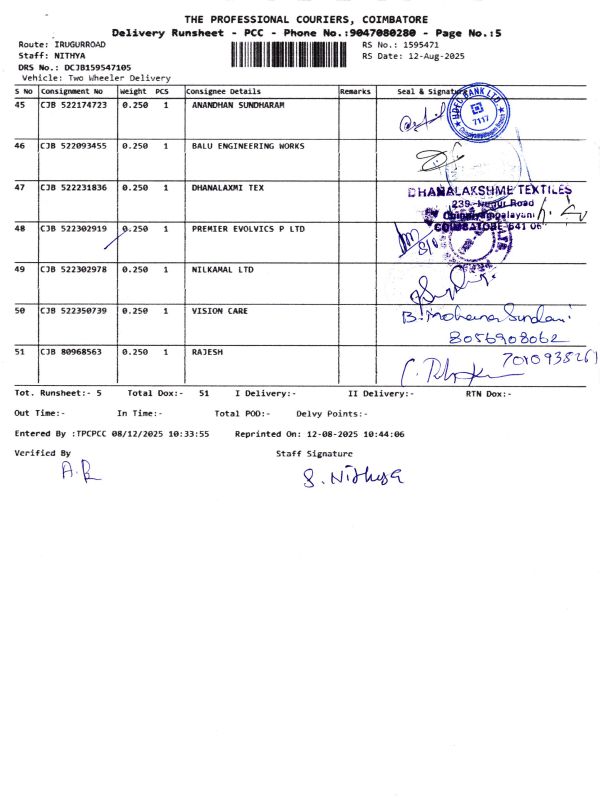 THE PROFESSIONAL COURIERS, COIMBATORE
Delivery Runsheet - PCC - Phone No.:9047080280 - Page No.:5
Route: IRUGURROAD
RS No.: 1595471
Staff: NITHYA
RS Date: 12-Aug-2025
DRS No.: DCJB159547105
Vehicle: Two Wheeler Delivery
S No Consignment No Weight PCS Consignee Details Remarks Seal & Signature
45 CJB 522174723 0.250 1 ANANDHAN SUNDHARAM
HDFC BANK LTD.
7117
46 CJB 522093455 0.250 1 BALU ENGINEERING WORKS
47 CJB 522231836 0.250 1 DHANALAXMI TEX
DHANALAKSHME TEXTILES
239, Nehru Road
COIMBATORE-641 06
48 CJB 522302919 0.250 1 PREMIER EVOLVICS P LTD
49 CJB 522302978 0.250 1 NILKAMAL LTD
50 CJB 522350739 0.250 1 VISION CARE
B. Mohana Sundari
8056908062
51 CJB 80968563 0.250 1 RAJESH
7010938261
Tot. Runsheet:- 5 Total Dox:- 51 I Delivery:- II Delivery:- RTN Dox:-
Out Time:- In Time:- Total POD:- Delvy Points:-
Entered By :TPCPCC 08/12/2025 10:33:55 Reprinted On: 12-08-2025 10:44:06
Verified By Staff Signature
S. Nithya